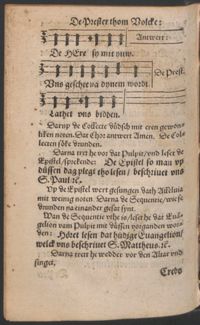 De Prester thom Volcke:
Antwert:
De HEre so mit yuw.
De Prest.
Vns geschee na dynem wordt.
Lathet vns bidden.
Darup de Collecte düdsch mit eren gewon-
liken noten. Dat Chor antwert Amen. De Col-
lecten söke hrunden.
Darna trit he vor dat Pulpit/ vnd leset de
Epistel/ sprekende: De Epistel so man vp
düssen dag plegt tho lesen/ beschriuet vns
S. Paul ꝛc.
Vp de Epistel wert gesungen dath Alleluia
mit weinig noten. Darna de Sequentie/ wie se
hrunden na einander gesat synt.
Wan de Sequentie vthe is/ leset he dat Euan-
gelion vam Pulpit mit düssen vorganden wor-
den: Höret lesen dat hüdige Euangelion/
welck vns beschriuet S. Mattheus. ꝛc.
Darna trit he wedder vor den Altar vnd
singet,
Credo